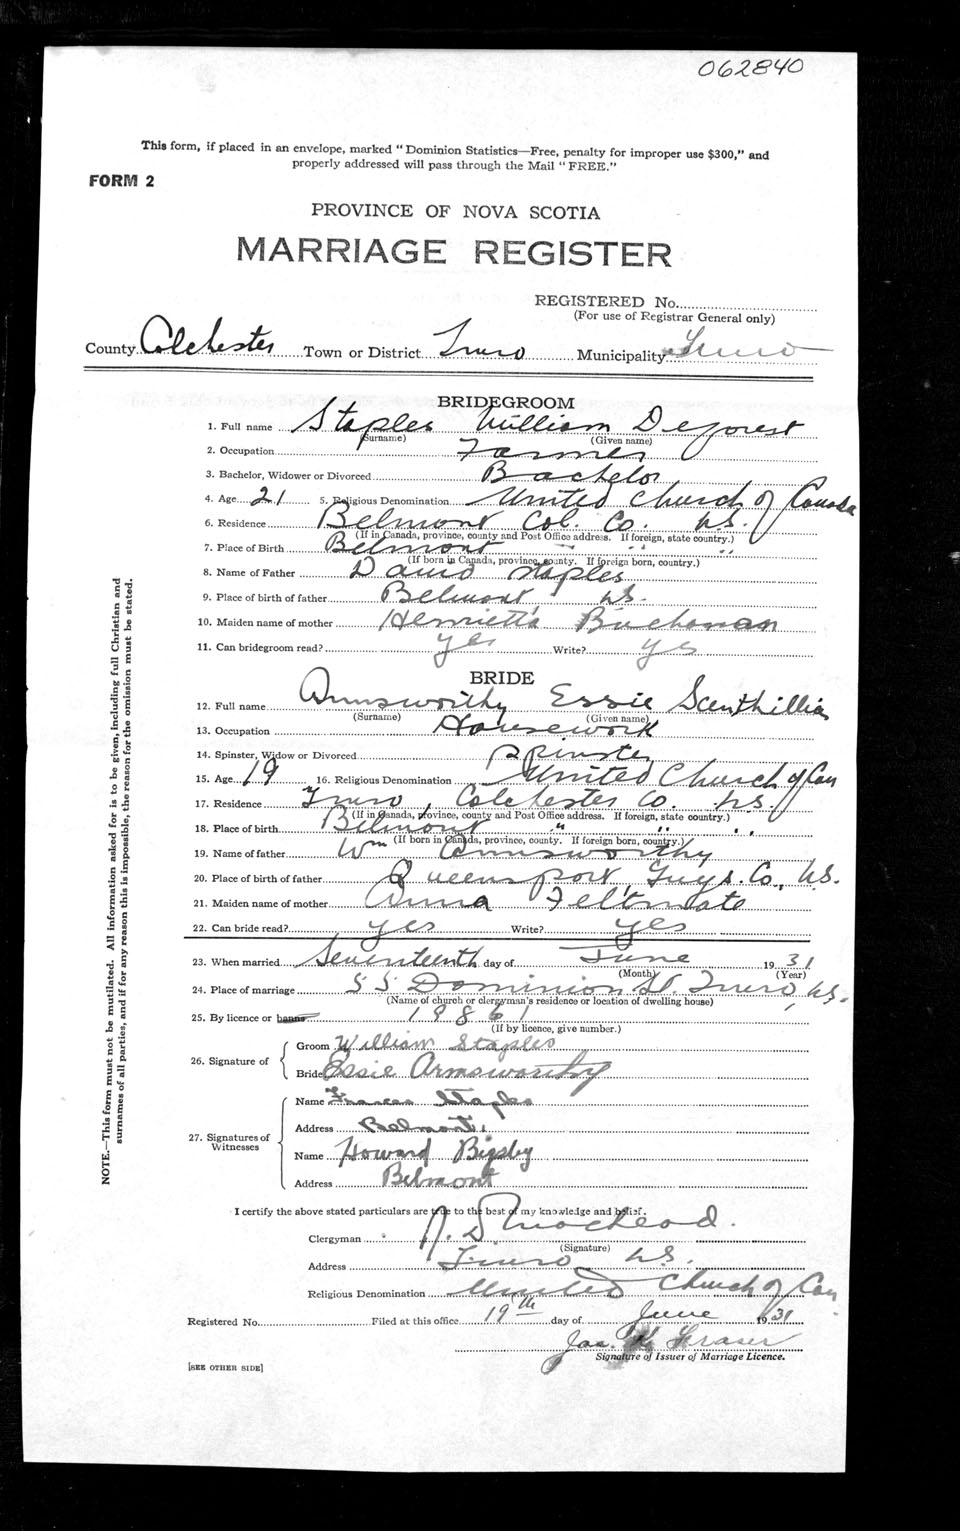 062840
This form, if placed in an envelope, marked "Dominion Statistics—Free, penalty for improper use $300," and
properly addressed will pass through the Mail "FREE."
FORM 2
PROVINCE OF NOVA SCOTIA
MARRIAGE REGISTER
REGISTERED No.
(For use of Registrar General only)
County Colchester Town or District Truro Municipality Truro
BRIDEGROOM
1. Full name Staples William Deforest
(Surname) (Given name)
2. Occupation Farmer
3. Bachelor, Widower or Divorced Bachelor
4. Age 21 5. Religious Denomination United Church of Canada
6. Residence Belmont Col. Co. N.S.
(If in Canada, province, county and Post Office address. If foreign, state country.)
7. Place of Birth Belmont " " "
(If born in Canada, province, county. If foreign born, country.)
8. Name of Father David Staples
9. Place of birth of father Belmont, N.S.
10. Maiden name of mother Henrietta Buchanan
11. Can bridegroom read? yes Write? yes
BRIDE
12. Full name Armsworthy Essie
(Surname) (Given name)
13. Occupation Housework
14. Spinster, Widow or Divorced Spinster
15. Age 19 16. Religious Denomination United Church of Can
17. Residence Truro, Colchester Co. N.S.
(If in Canada, province, county and Post Office address. If foreign, state country.)
18. Place of birth Belmont " " "
(If born in Canada, province, county. If foreign born, country.)
19. Name of father Wm Armsworthy
20. Place of birth of father Queensport, Guys. Co., N.S.
21. Maiden name of mother Anna Feltmate
22. Can bride read? yes Write? yes
23. When married Seventeenth day of June 1931
(Month) (Year)
24. Place of marriage 55 Dominion St. Truro, N.S.
(Name of church or clergyman's residence or location of dwelling house)
25. By licence or banns 19861
(If by licence, give number.)
26. Signature of
Groom William Staples
Bride Essie Armsworthy
27. Signatures of Witnesses
Name Frances Staples
Address Belmont
Name Howard Bigsby
Address Belmont
NOTE.—This form must not be mutilated. All information asked for is to be given, including full Christian and
surnames of all parties, and if for any reason this is impossible, the reason for the omission must be stated.
I certify the above stated particulars are true to the best of my knowledge and belief.
Clergyman
(Signature)
Address Truro N.S.
Religious Denomination United Church of Can
Registered No. Filed at this office 19th day of June 1931
Jas. Fraser
Signature of Issuer of Marriage Licence.
[SEE OTHER SIDE]